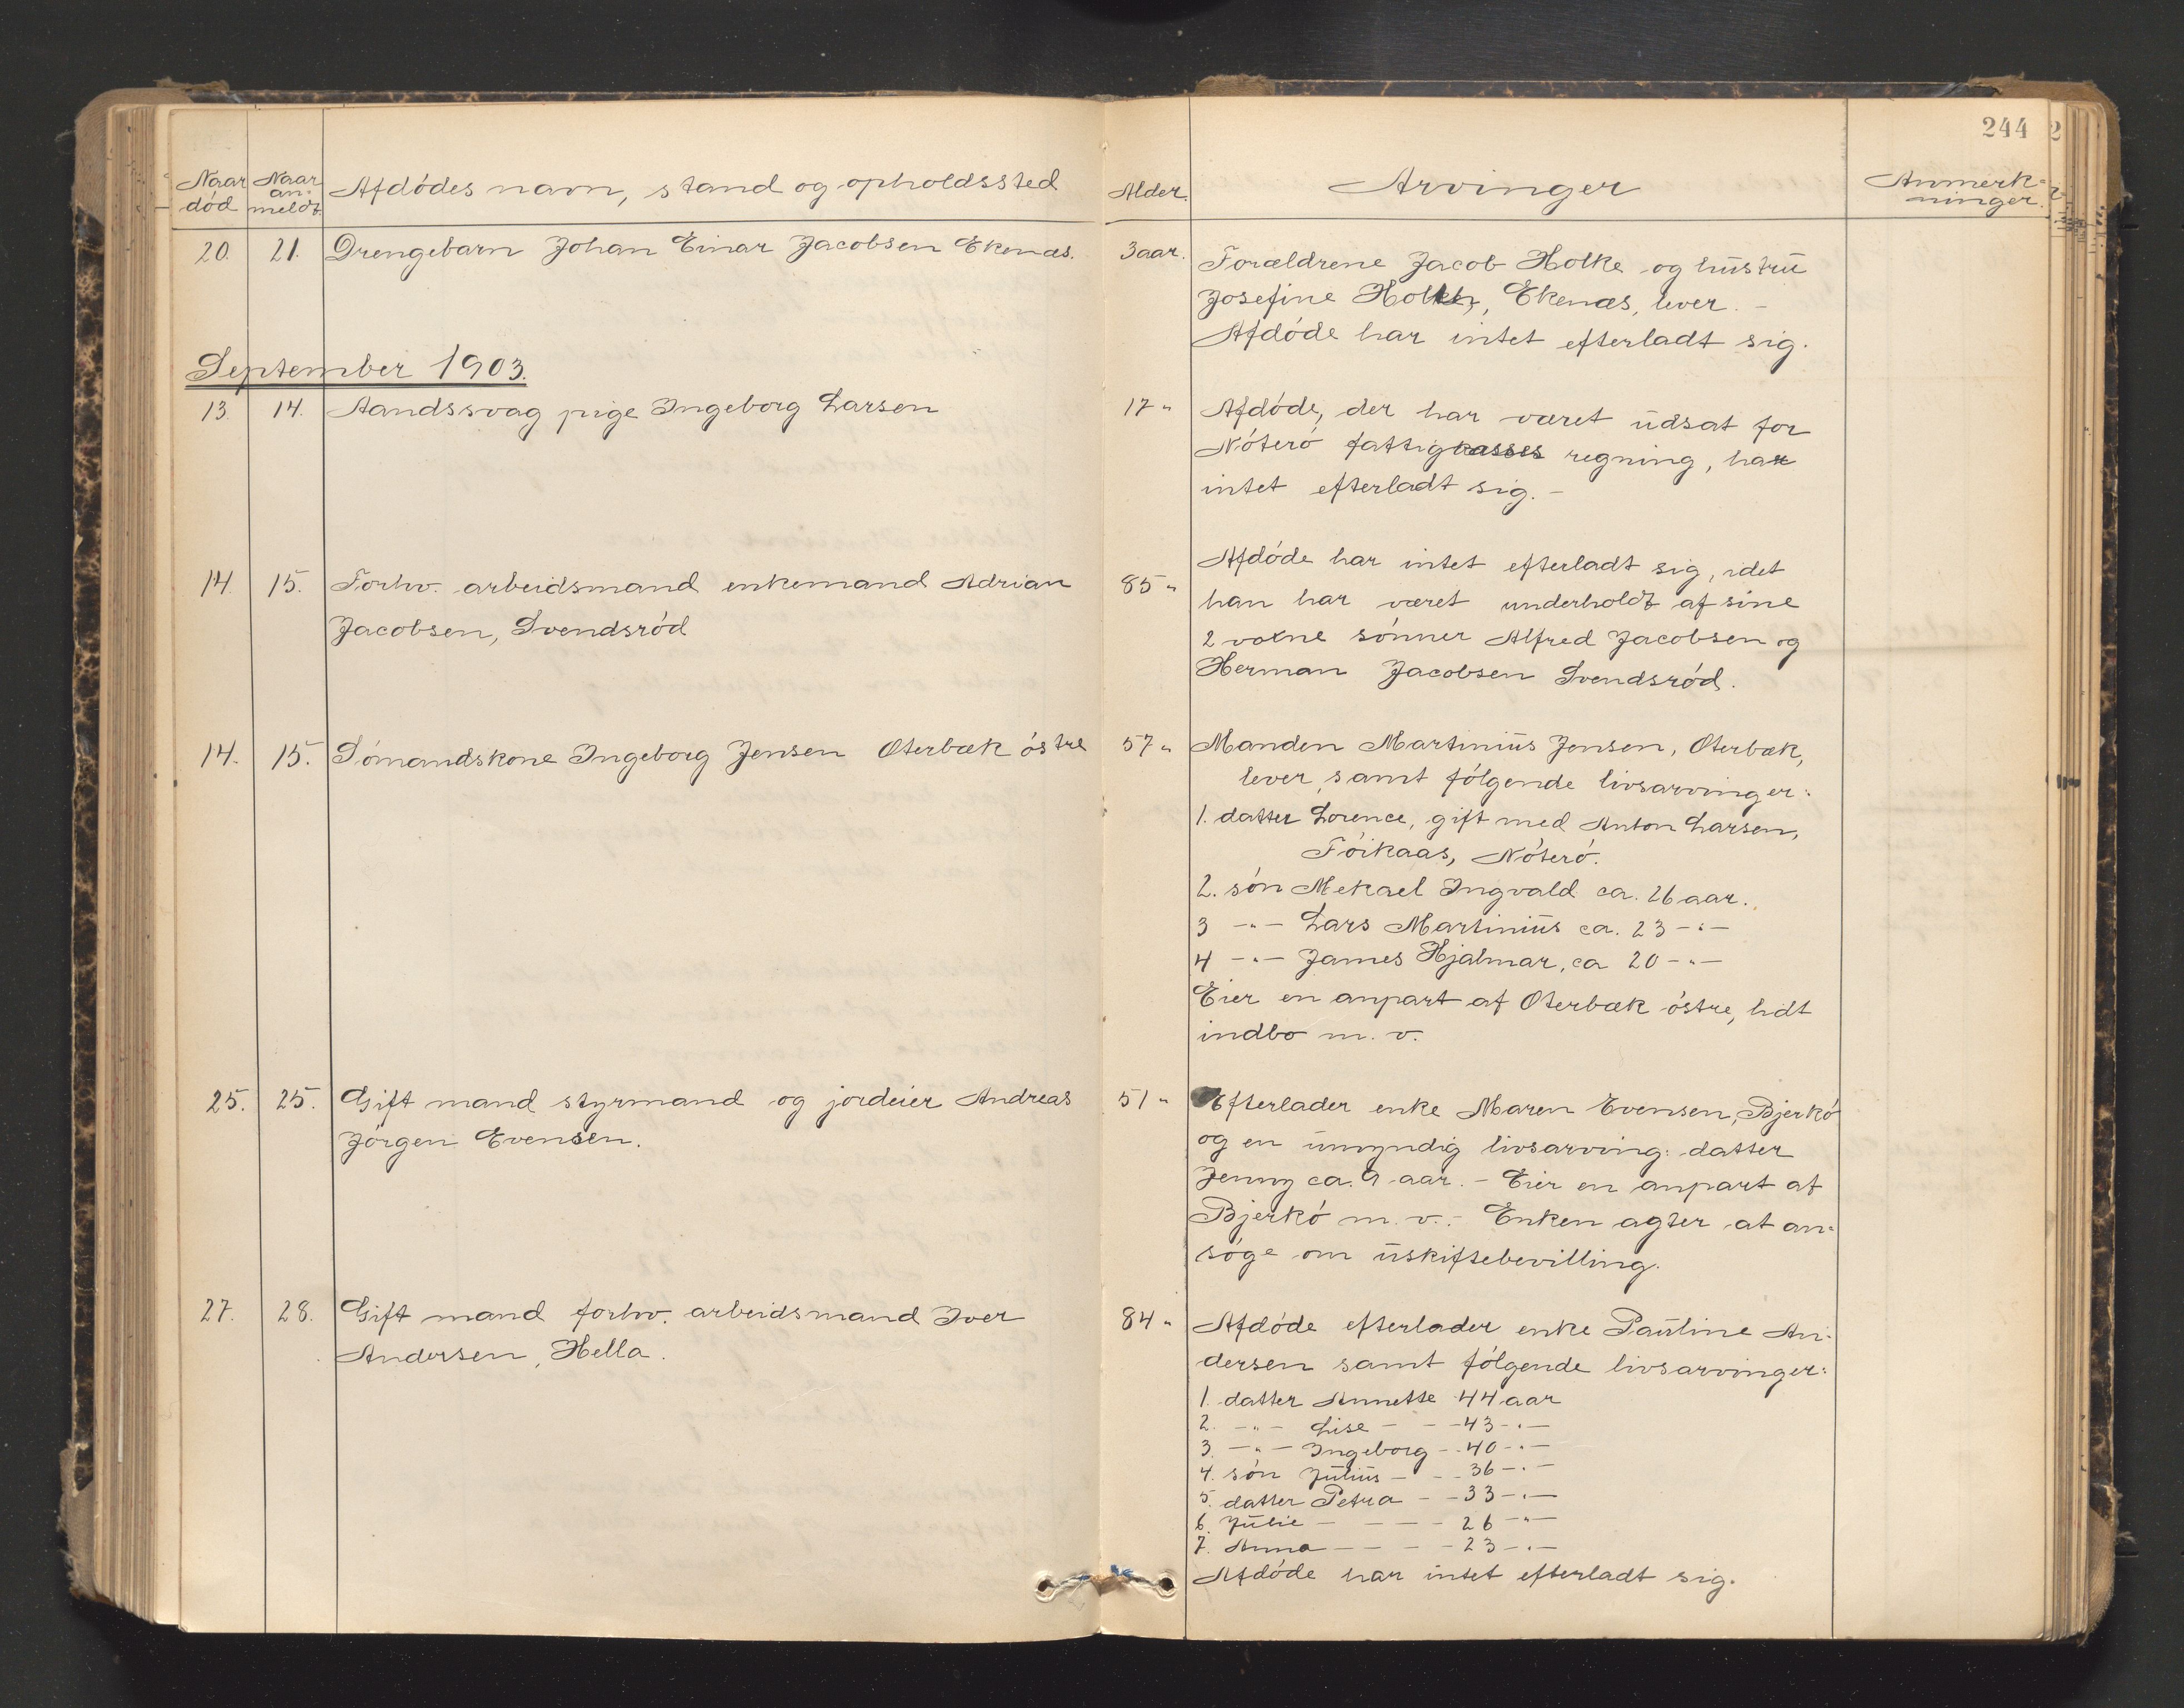 244
Naar død
Naar an=meldt.
Afdödes navn, stand og opholdssted
Alder.
Arvinger
Anmerk=
ninger.
20. 21. Drengebarn Johan Einar Jacobsen Ekenæs. 3 aar.
Forældrene Jacob Holke og hustru
Josefine Holke, Ekenæs, lever. –
Afdöde har intet efterladt sig.
September 1903.
13. 14. Aandssvag pige Ingeborg Larsen 17 "
Afdöde, der har været udsat for
Nöterö fattigkasses regning, har
intet efterladt sig. –
14. 15. Forhv. arbeidsmand enkemand Adrian 85 "
Jacobsen, Svendsröd
Afdöde har intet efterladt sig, idet
han har været underholdt af sine
2 voxne sönner Alfred Jacobsen og
Herman Jacobsen Svendsröd.
14. 15. Sömandskone Ingeborg Jensen Oterbæk östre 57 "
Manden Martinius Jensen, Oterbæk,
lever, samt fölgende livsarvinger:
1. datter Lorence, gift med Anton Larsen,
Föikaas, Nöterö.
2. sön Mekael Ingvald ca. 26 aar.
3 –"– Lars Martinius ca. 23 –"–
4 –"– James Hjalmar, ca 20 –"–
Eier en anpart af Oterbæk östre, lidt
indbo m. v.
25. 25. Gift mand styrmand og jordeier Andreas 51 "
Jörgen Evensen.
Efterlader enke Maren Evensen, Bjerkö
og en umyndig livsarving: datter
Jenny ca. 9 aar. – Eier en anpart af
Bjerkö m. v. – Enken agter at an=
söge om uskiftebevilling.
27. 28. Gift mand forhv. arbeidsmand Iver 84 "
Andersen, Hella.
Afdöde efterlader enke Pauline An=
dersen samt fölgende livsarvinger:
1. datter Annette 44 aar
2. –"– Lise – – 43 –"–
3. –"– Ingeborg – 40 –"–
4. sön Julius – – 36 –"–
5. datter Petra – – 33 –"–
6. Julie – – – – 26 –"–
7. Anna – – – – 23 –"–
Afdöde har intet efterladt sig.